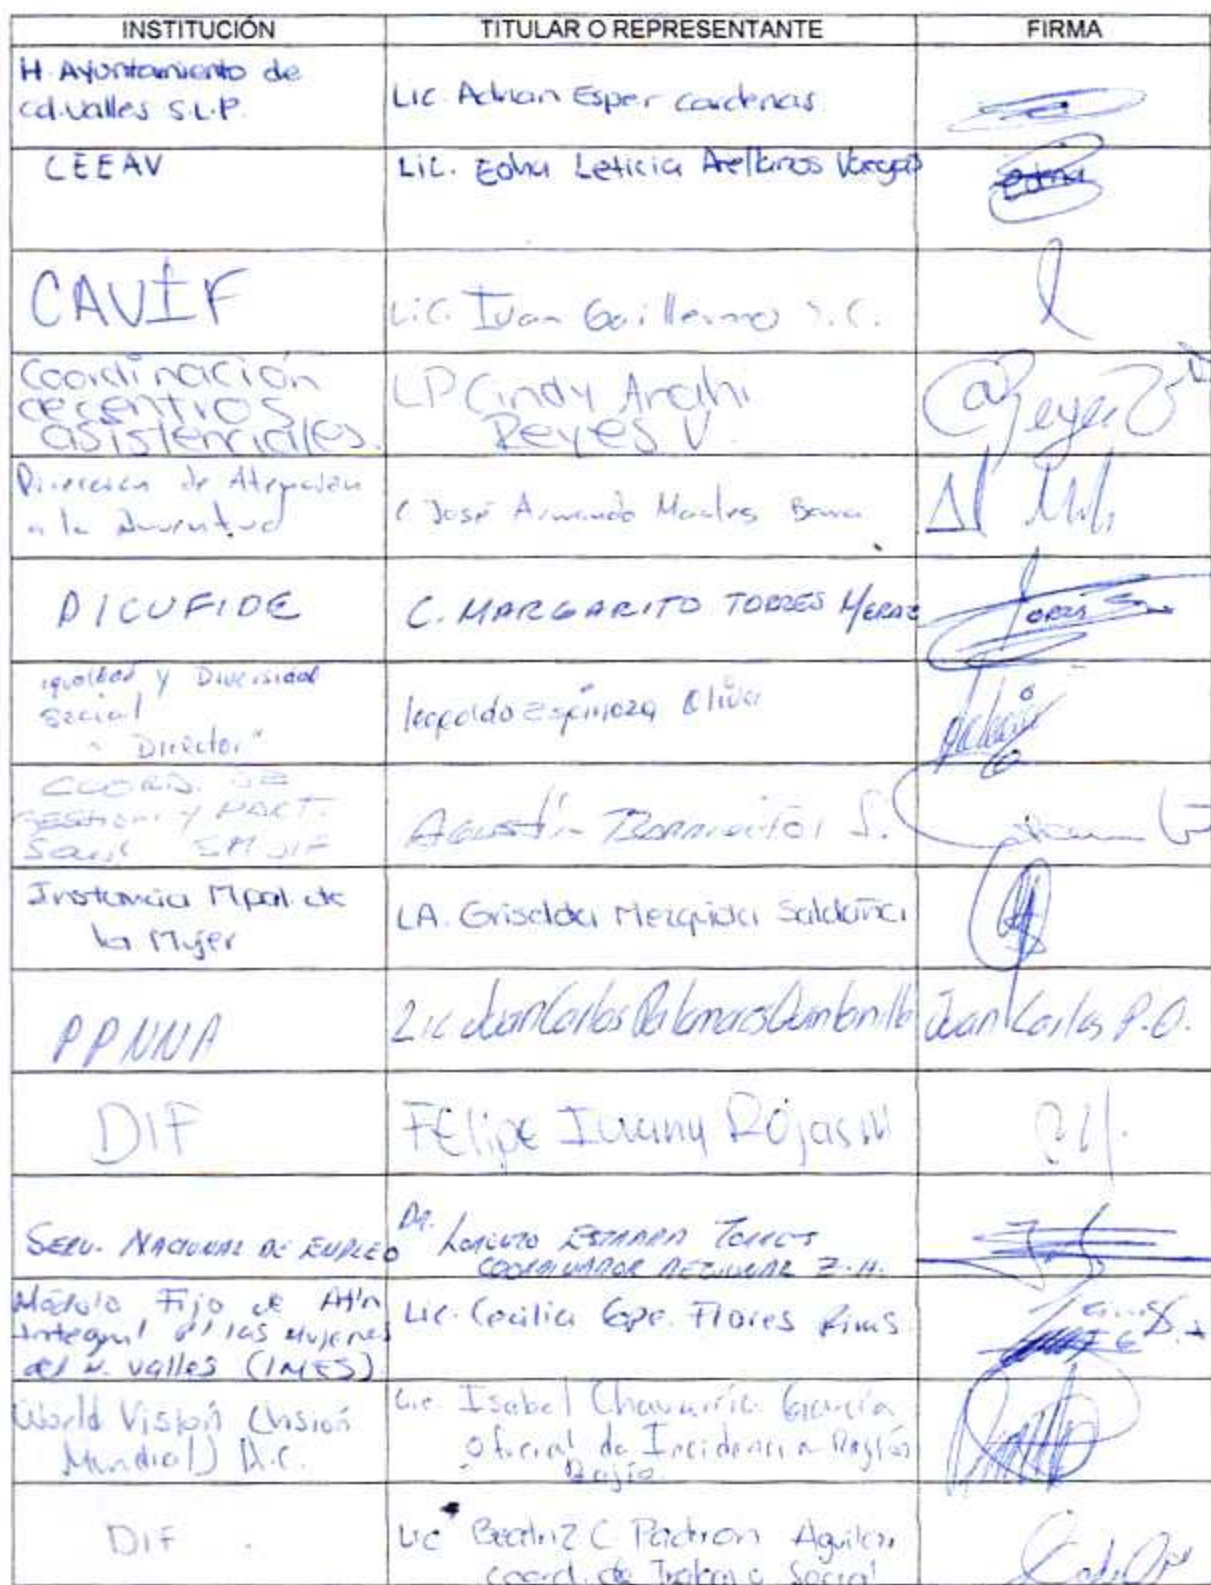 INSTITUCIÓN TITULAR O REPRESENTANTE FIRMA
H. Ayuntamiento de
cd. valles S.L.P.
Lic. Adrian Esper cardenas.
CEEAV
Lic. Edna Leticia Arellanos Vargas
Edna
CAVIF
Lic. Ivan Guillermo S.C.
Coordinación
de centros
asistenciales.
LP Cindy Arahi
Reyes V.
Dirección de Atención
a la Juventud
C José Armando Morales
DICUFIDE
C. MARGARITO TORRES MERAZ
igualdad y Diversidad
Social
"Director"
leopoldo Espinoza Oliva
COORD. DE
GESTION Y PART.
Social SMDIF
Agustín Barrientos S.
Instancia Mpal. de
la Mujer
LA. Griselda Mezquida Saldaña
PPNNA
Lic Juan Carlos Palomares
Juan Carlos P.O.
DIF
FElipe Ivanny Rojas M
SERV. NACIONAL DE EMPLEO
LORENZO ESTRADA TORRES
COORDINADOR REGIONAL Z.H.
Módulo Fijo de At'n
Integral a las Mujeres
del M. valles (IMES)
Lic. Cecilia Gpe. Flores Rivas
World Vision (Visión
Mundial) A.C.
Lic. Isabel Chavarría García
Oficial de Incidencia Región
Bajío.
DIF
Lic Beatriz C Padron Aguilar
coord. de Trabajo Social